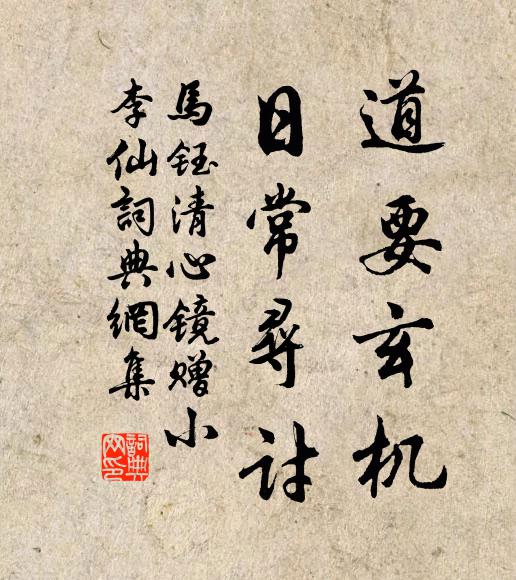 道要玄机
日常尋討
馬鈺清心镜赠小
李仙詞典網集
詞典
网印